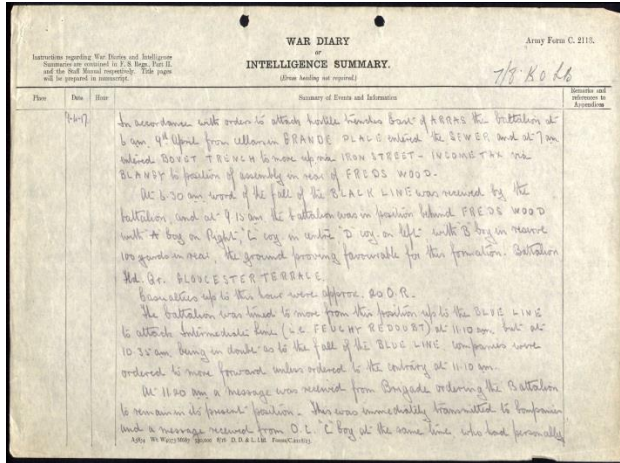 WAR DIARY
or
INTELLIGENCE SUMMARY.
(Erase heading not required.)
Army Form C. 2118.
Instructions regarding War Diaries and Intelligence
Summaries are contained in F. S. Regs., Part II.
and the Staff Manual respectively. Title pages
will be prepared in manuscript.
7/8
Place Date Hour Summary of Events and Information Remarks and references to Appendices
9-4-17. In accordance with orders to attack hostile trenches East of ARRAS the battalion at
6 am 9th April from cellars in GRANDE PLACE entered the SEWER and at 7 am
entered BOVET TRENCH to move up via IRON STREET - INCOME TAX via
BLANGY to position of assembly in rear of FREDS WOOD.
At 8.30 am word of the fall of the BLACK LINE was received by the
battalion, and at 9.15 am the battalion was in position behind FREDS WOOD
with "A" Coy on Right, "C" coy in centre "D" coy on left with "B" Coy in reserve
100 yards in rear, the ground proving favourable for this formation. Battalion
Hd. Qr. GLOUCESTER TERRACE.
Casualties up to this hour were approx. 20 O.R.
The battalion was timed to move from this position up to the BLUE LINE
to attack Intermediate Line (i.e. FEUCHY REDOUBT) at 11.10 am, but at
10.35 am, being in doubt as to the fall of the BLUE LINE companies were
ordered to move forward unless ordered to the contrary at 11.10 am.
At 11.00 am a message was received from Brigade ordering the Battalion
to remain in its present position. This was immediately transmitted to Companies
and a message received from O.C. "C" Coy at the same time who had personally